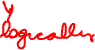 y
logically